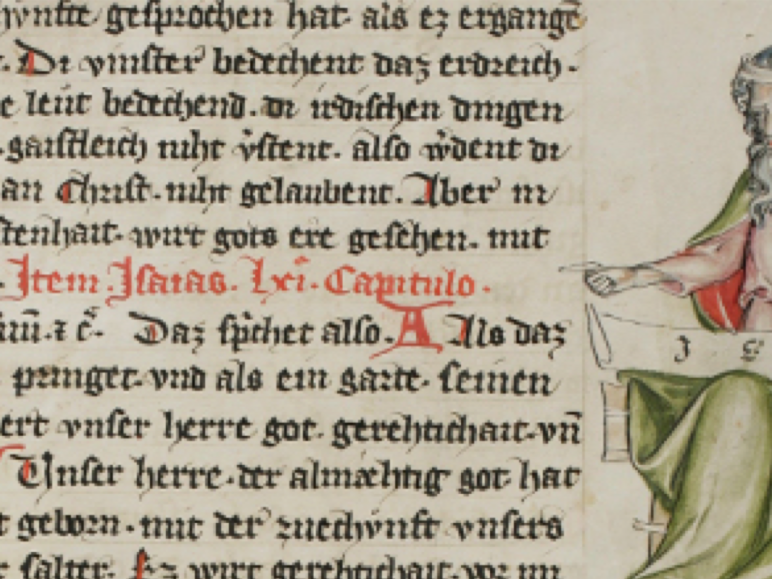 gesprochen hat· als ez ergangē
Di vinster bedechent daz erdreich·
leut bedechend· di irdischen dingen
gaistleich niht v̓stent· also w̓dent di
an christ· niht gelaubent· Aber in
stenhait· wirt gots ere gesehen· mit
Item· Isaias· lxi· Capitulo·
⁊ cͣ· Daz sp̓chet also· A Als daz
pringet· vnd als ein garte· seinen
ert vnser herre got· gerehtichait· vn̄
Vnser herre· der almæhtig got hat
geborn· mit der zuechvnft vnsers
salter· Ez wirt gerehtichait·
I S